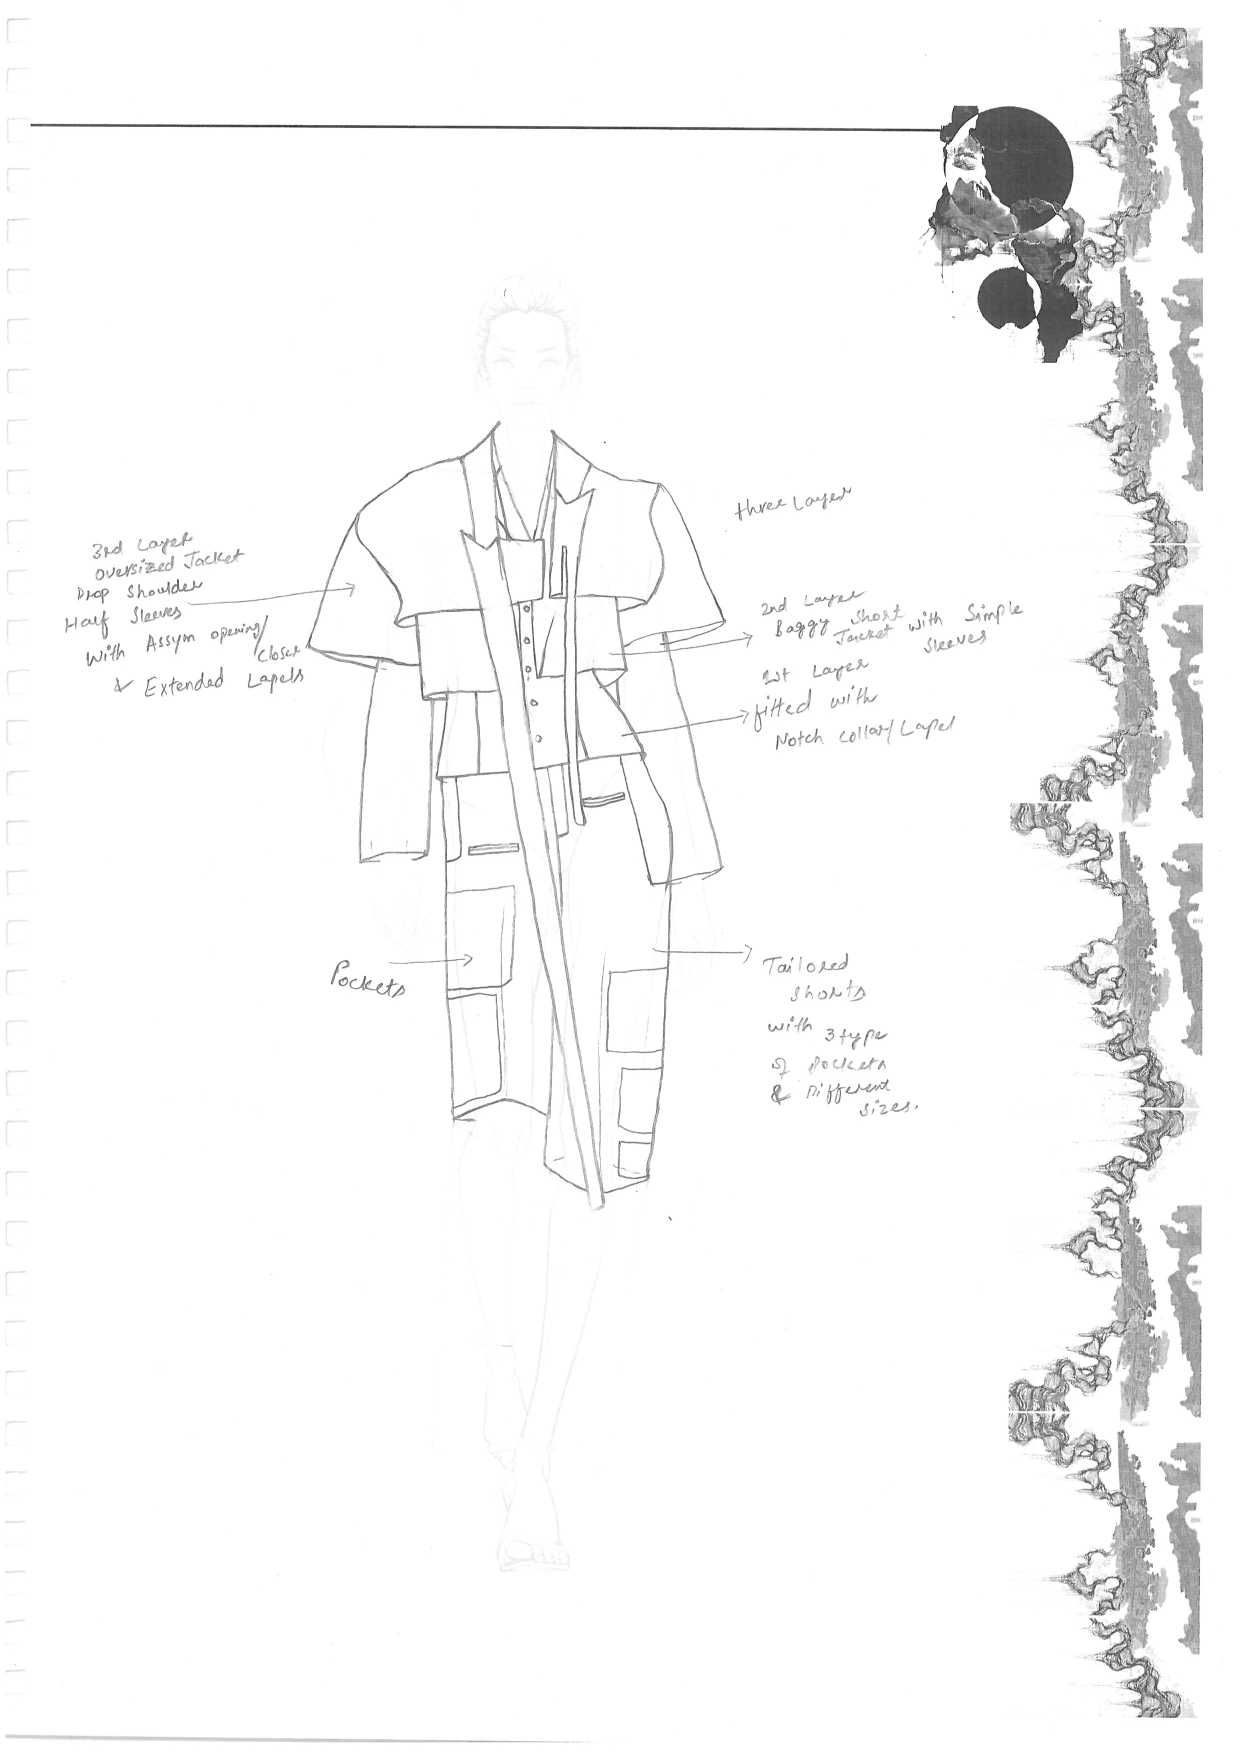 three Layer
3rd Layer
oversized Jacket
Drop Shoulder
Half Sleeves
With Assym opening/
Closer
& Extended Lapels
2nd Layer
Baggy Short
Jacket with Simple
Sleeves
1st Layer
fitted with
Notch collar/Lapel
Pockets
Tailored
shorts
with 3 type
of pockets
& Different
sizes.